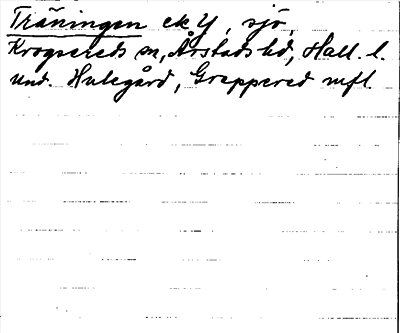 Träningen ek Y, sjö,
Krogsereds sn, Årstads hd, Hall. l.
und. Hulegård, Greppered mfl.